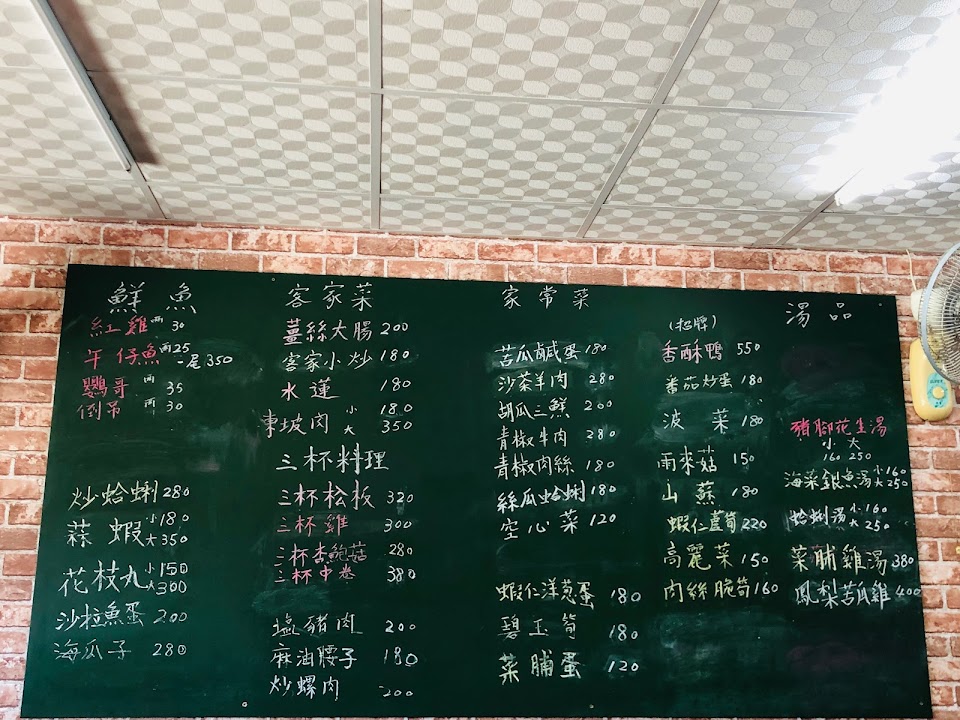 鮮魚
紅雞 兩30
午仔魚 兩25
一尾350
鸚哥 兩35
倒吊 兩30
炒蛤蜊 280
蒜蝦 小180
大350
花枝丸 小150
大300
沙拉魚蛋 200
海瓜子 280
客家菜
薑絲大腸 200
客家小炒 180
水蓮 180
東坡肉 小 180
大 350
三杯料理
三杯松板 320
三杯雞 300
三杯杏鮑菇 280
三杯中卷 380
塩豬肉 200
麻油腰子 180
炒螺肉 200
家常菜
苦瓜鹹蛋 180
沙茶羊肉 280
胡瓜三鮮 200
青椒牛肉 280
青椒肉絲 180
絲瓜蛤蜊 180
空心菜 120
蝦仁洋蔥蛋 180
碧玉筍 180
菜脯蛋 120
(招牌)
香酥鴨 550
番茄炒蛋 180
波菜 180
雨來菇 150
山蘇 180
蝦仁蘆筍 220
高麗菜 150
肉絲脆筍 160
湯品
豬腳花生湯
小 大
160 250
海菜銀魚湯 小160
大250
蛤蜊湯 小160
大250
菜脯雞湯 380
鳳梨苦瓜雞 400